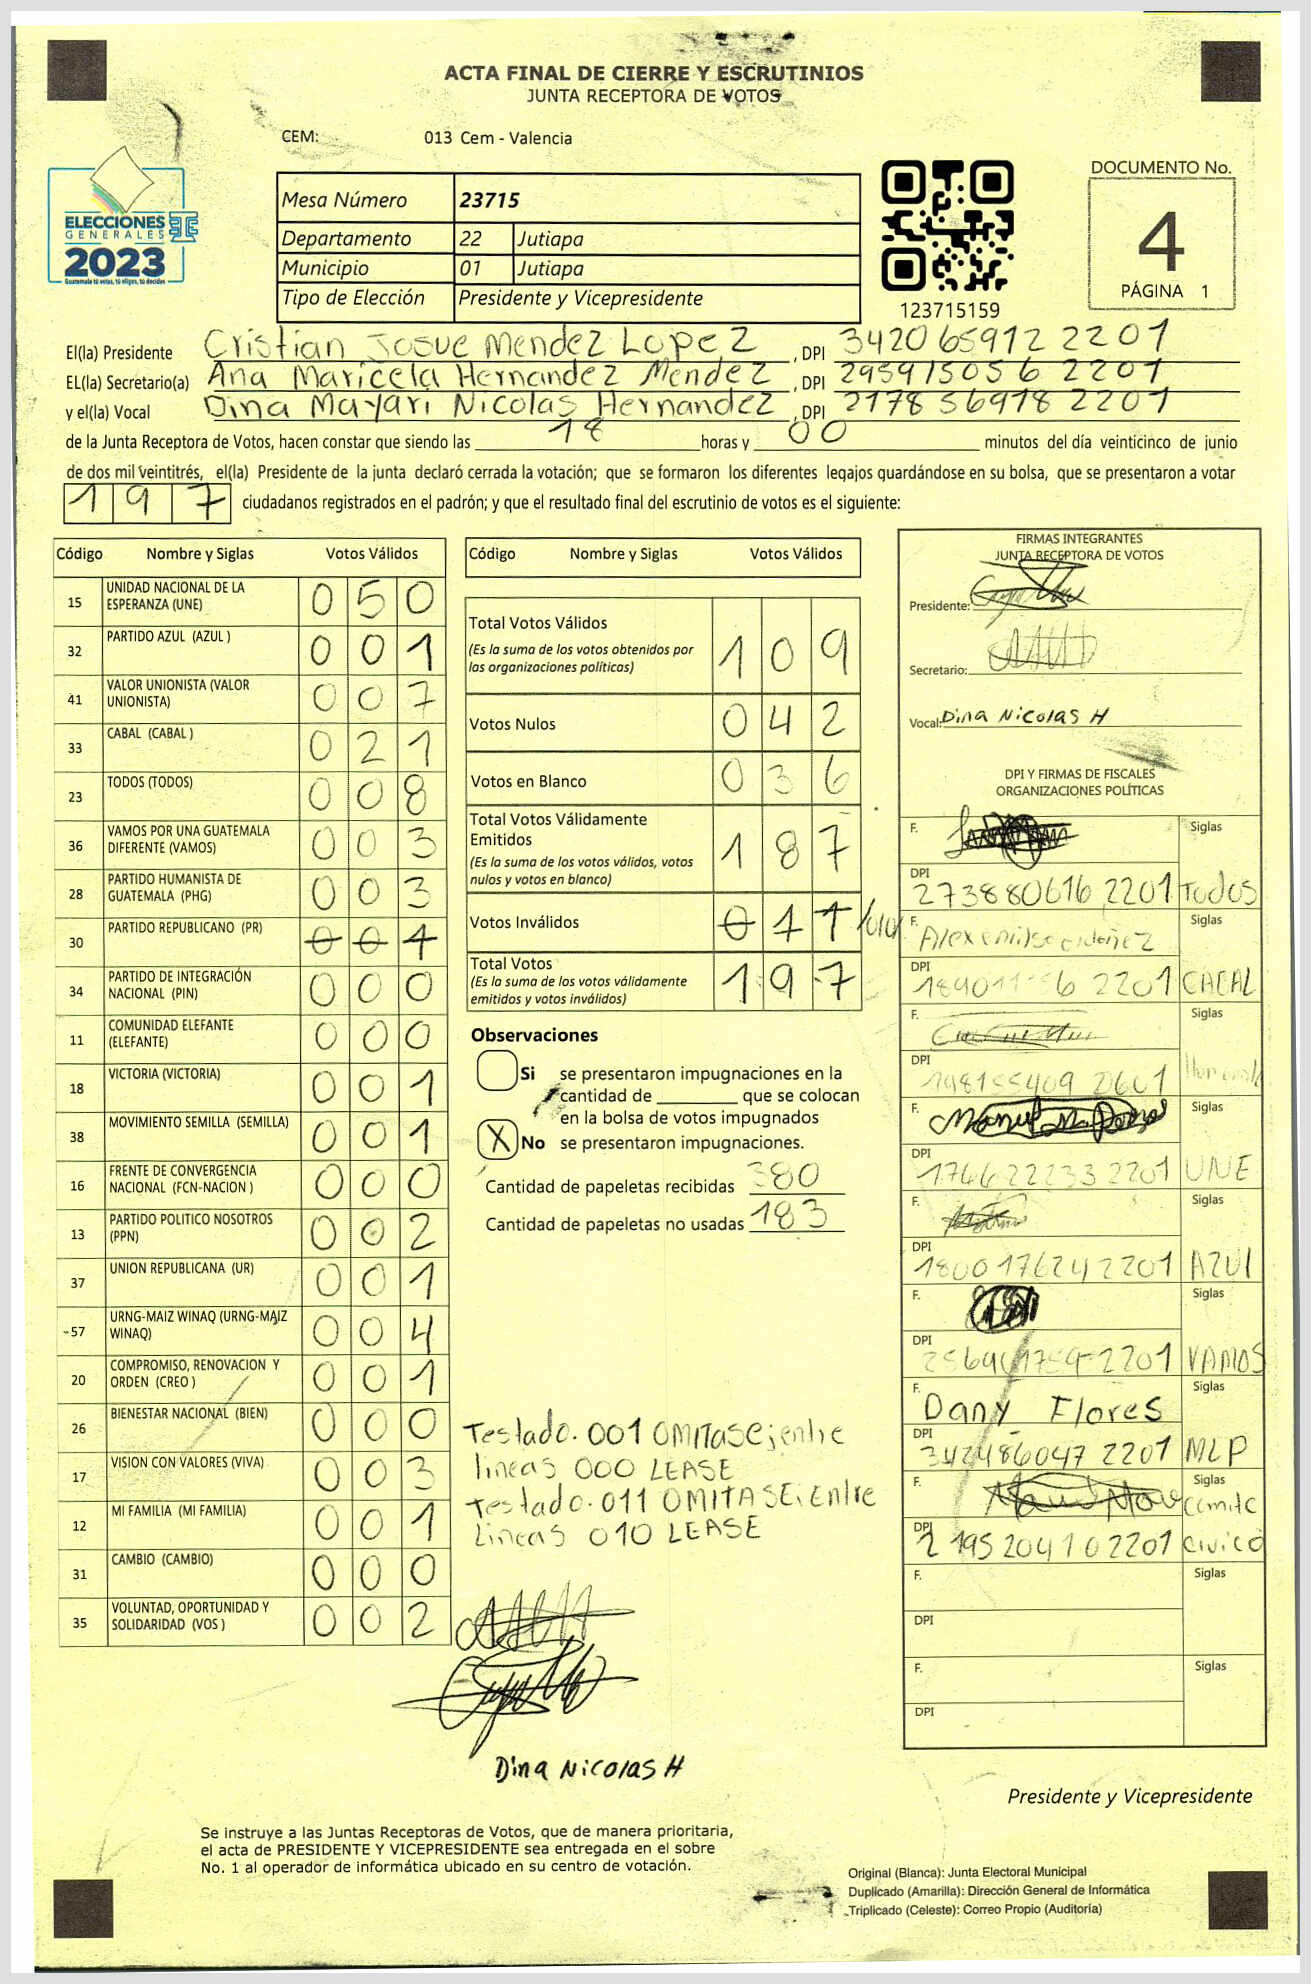 ACTA FINAL DE CIERRE Y ESCRUTINIOS
JUNTA RECEPTORA DE VOTOS
CEM: 013 Cem - Valencia
ELECCIONES
GENERALES
2023
Guatemala tú votas, tú eliges, tú decides
DOCUMENTO No.
4
PÁGINA 1
Mesa Número 23715
Departamento 22 Jutiapa
Municipio 01 Jutiapa
Tipo de Elección Presidente y Vicepresidente
123715159
El(la) Presidente Cristian Josue Mendez Lopez , DPI 342065912 2201
EL(la) Secretario(a) Ana Maricela Hernandez Mendez , DPI 295915056 2201
y el(la) Vocal Dina Mayari Nicolas Hernandez , DPI 217856918 2201
de la Junta Receptora de Votos, hacen constar que siendo las 18 horas y 00 minutos del día veinticinco de junio
de dos mil veintitrés, el(la) Presidente de la junta declaró cerrada la votación; que se formaron los diferentes legajos guardándose en su bolsa, que se presentaron a votar
197 ciudadanos registrados en el padrón; y que el resultado final del escrutinio de votos es el siguiente:
Código Nombre y Siglas Votos Válidos
15 UNIDAD NACIONAL DE LA ESPERANZA (UNE) 050
32 PARTIDO AZUL (AZUL ) 001
41 VALOR UNIONISTA (VALOR UNIONISTA) 007
33 CABAL (CABAL ) 021
23 TODOS (TODOS) 008
36 VAMOS POR UNA GUATEMALA DIFERENTE (VAMOS) 003
28 PARTIDO HUMANISTA DE GUATEMALA (PHG) 003
30 PARTIDO REPUBLICANO (PR) 001
34 PARTIDO DE INTEGRACIÓN NACIONAL (PIN) 000
11 COMUNIDAD ELEFANTE (ELEFANTE) 000
18 VICTORIA (VICTORIA) 001
38 MOVIMIENTO SEMILLA (SEMILLA) 001
16 FRENTE DE CONVERGENCIA NACIONAL (FCN-NACION ) 000
13 PARTIDO POLITICO NOSOTROS (PPN) 002
37 UNION REPUBLICANA (UR) 001
57 URNG-MAIZ WINAQ (URNG-MAIZ WINAQ) 004
20 COMPROMISO, RENOVACION Y ORDEN (CREO ) 001
26 BIENESTAR NACIONAL (BIEN) 000
17 VISION CON VALORES (VIVA) 003
12 MI FAMILIA (MI FAMILIA) 001
31 CAMBIO (CAMBIO) 000
35 VOLUNTAD, OPORTUNIDAD Y SOLIDARIDAD (VOS ) 002
Código Nombre y Siglas Votos Válidos
Total Votos Válidos 109
(Es la suma de los votos obtenidos por
las organizaciones políticas)
Votos Nulos 042
Votos en Blanco 036
Total Votos Válidamente
Emitidos 187
(Es la suma de los votos válidos, votos
nulos y votos en blanco)
Votos Inválidos 011 /010/
Total Votos 197
(Es la suma de los votos válidamente
emitidos y votos inválidos)
Observaciones
Si se presentaron impugnaciones en la
cantidad de ________ que se colocan
en la bolsa de votos impugnados
X No se presentaron impugnaciones.
Cantidad de papeletas recibidas 380
Cantidad de papeletas no usadas 183
Testado. 001 OMITASE; entre
lineas 000 LEASE
Testado. 011 OMITASE; Entre
Lineas 010 LEASE
Dina Nicolas H
FIRMAS INTEGRANTES
JUNTA RECEPTORA DE VOTOS
Presidente:
Secretario:
Vocal: Dina Nicolas H
DPI Y FIRMAS DE FISCALES
ORGANIZACIONES POLÍTICAS
F. Siglas
DPI 273880616 2201 Todos
F. Siglas
DPI 2201 CABAL
F. Siglas
DPI
F. Siglas
DPI 176622233 2201 UNE
F. Siglas
DPI 180017624 2 2201 AZUL
F. Siglas
DPI 2201 VAMOS
F. Dany Flores Siglas
DPI 342486047 2201 MLP
F. Siglas
DPI 2 19520410 2201 Comite Civico
F. Siglas
DPI
F. Siglas
DPI
Presidente y Vicepresidente
Se instruye a las Juntas Receptoras de Votos, que de manera prioritaria,
el acta de PRESIDENTE Y VICEPRESIDENTE sea entregada en el sobre
No. 1 al operador de informática ubicado en su centro de votación.
Original (Blanca): Junta Electoral Municipal
Duplicado (Amarilla): Dirección General de Informática
Triplicado (Celeste): Correo Propio (Auditoría)